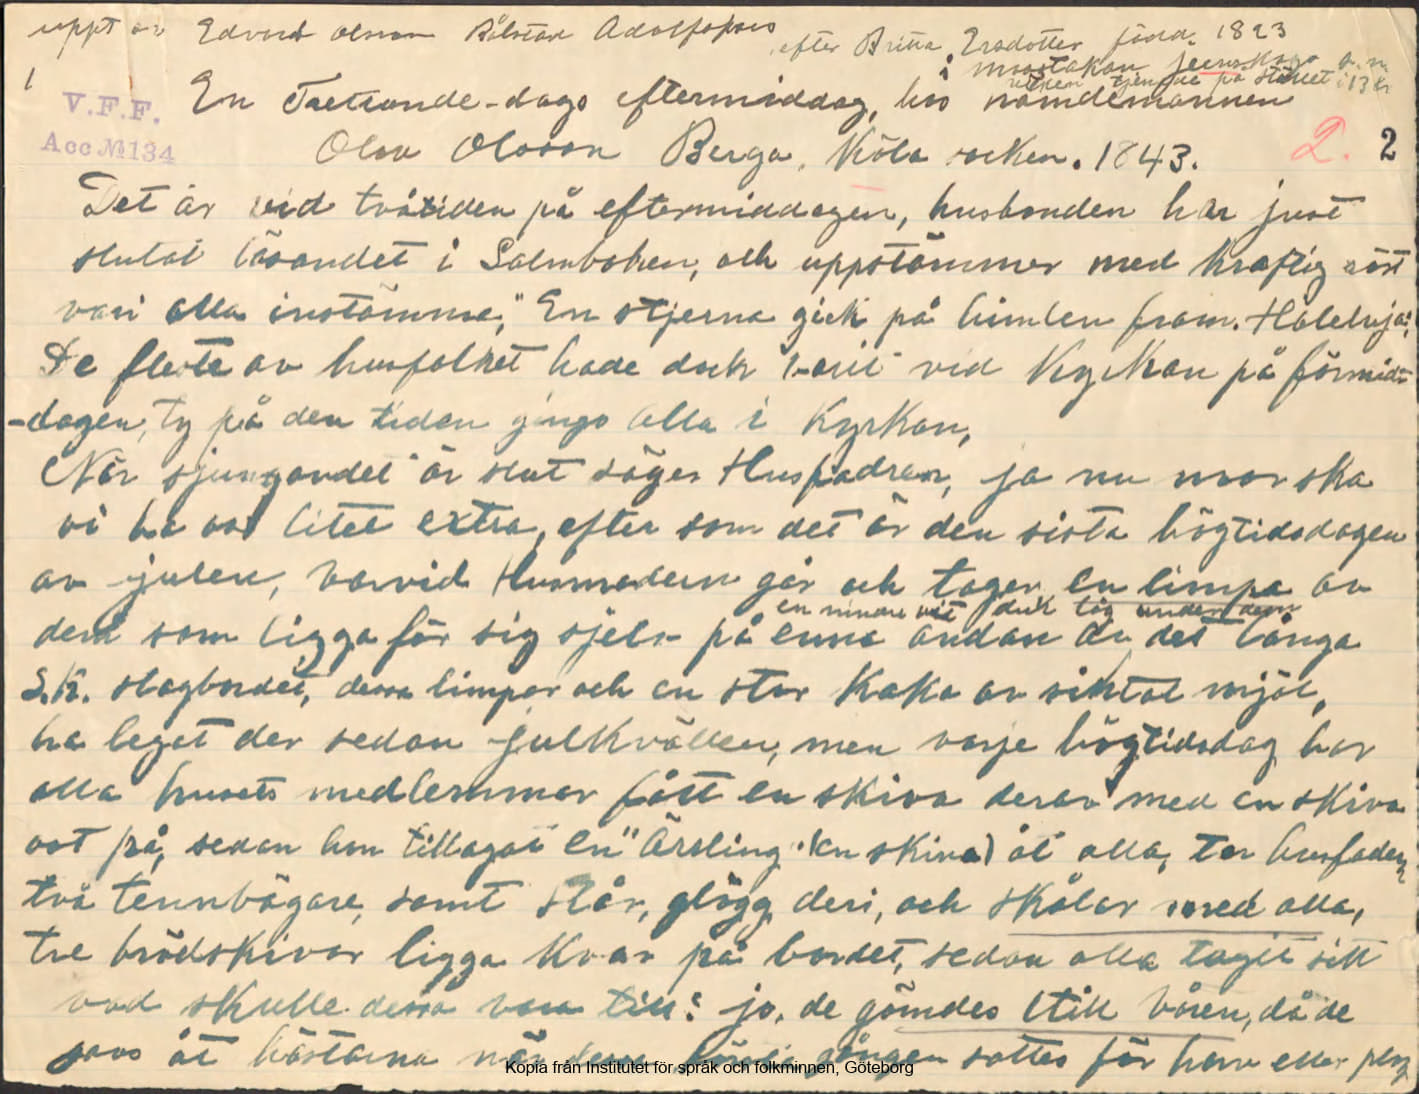 uppt av Edvard Olsson Bålstad Adolfsfors
efter Britta Ersdotter född. 1823
i Mostakan Jernskogs s.n
vilken tjenade på stället i 13 år
1
V.F.F.
Acc № 134
En Trettonde-dags eftermiddag, hos nämdemannen
Olov Olsson Berga, Köla socken. 1843.
2. 2
Det är vid tvåtiden på eftermiddagen, husbonden har just
slutat läsandet i Salmboken, och uppstämmer med kraftig röst
vari alla instämma, "En stjerna gick på himlen fram. Haleluja",
De flesta av husfolket hade dock varit vid Kyrkan på förmid-
-dagen, ty på den tiden gingo alla i Kyrkan,
När sjungandet är slut säger Husfadren, ja nu mor ska
vi ha oss litet extra, efter som det är den sista högtidsdagen
av julen, varvid Husmodern går och tager en limpa av
en mindre vit duk låg under dem
dem som ligga för sig sjelv på ena ändan av det långa
S.K. slagbordet, dessa limpor och en stor Kaka av siktat mjöl,
ha leget der sedan julkvällen, men varje högtidsdag har
alla husets medlemmar fått en skiva derav med en skiva
ost på, sedan hon tillagat en "Ärsling" (en skiva) åt alla, tar husfadern
två tennbägare, samt slår, glögg deri, och skålar med alla,
tre brödskivor ligga kvar på bordet, sedan alla tagit sitt
vad skulle dessa vara till? jo, de gömdes till våren, då de
gavs åt hästarna när dessa första gången sattes för harv eller plog
Kopia från Institutet för språk och folkminnen, Göteborg